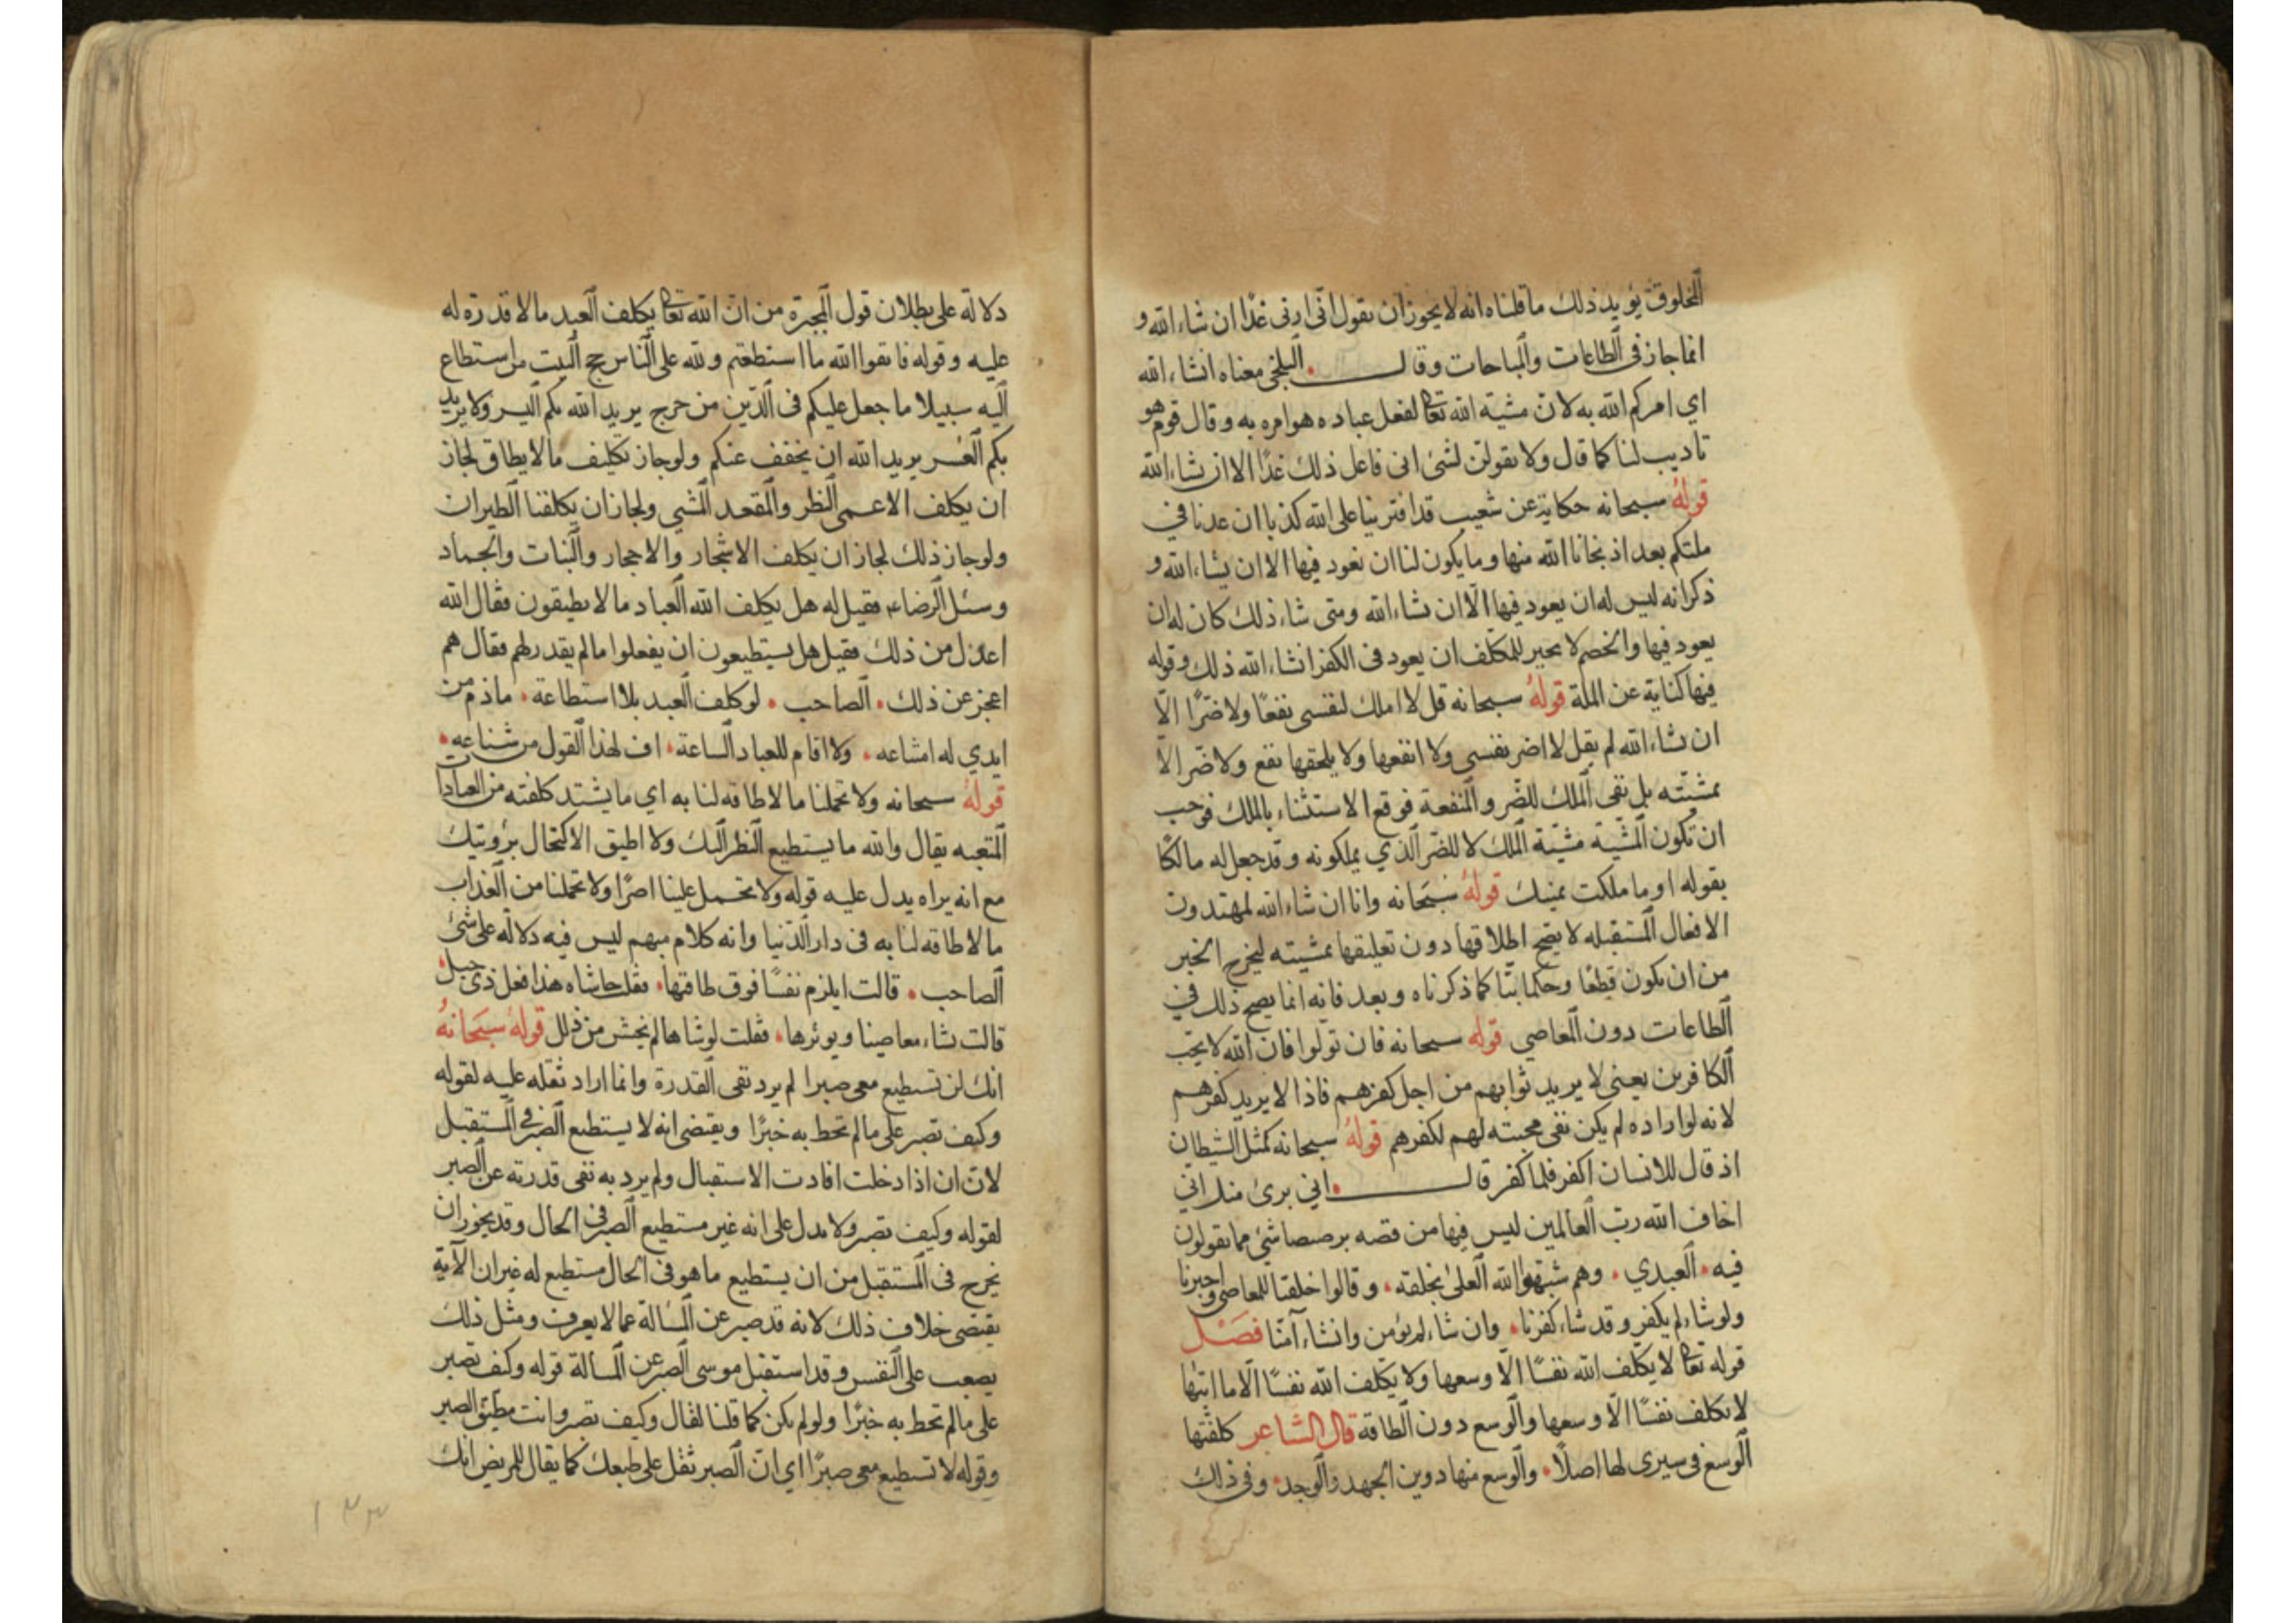 المخلوق يؤيد ذلك ما قلناه انه لا يجوز ان يقول انى ازنى غدًا ان شاء الله و
انما جاز فى الطاعات والمباحات وقال البلخى معناه انشاء الله
اي امركم الله به لان مشية الله تعالى لفعل عباده هو امره به وقال قوم هو
تاديب لنا كما قال ولا تقولن لشئ انى فاعل ذلك غدًا الا ان يشاء الله
قوله سبحانه حكاية عن شعيب قد افترينا على الله كذبا ان عدنا في
ملتكم بعد اذ نجانا الله منها وما يكون لنا ان نعود فيها الا ان يشاء الله و
ذكر انه ليس له ان يعود فيها الّا ان يشاء الله ومتى شاء ذلك كان له ان
يعود فيها والخصم لا يجيز للمكلف ان يعود فى الكفر انشاء الله ذلك وقوله
فيها كناية عن الملة قوله سبحانه قل لا املك لنفسى نفعًا ولا ضرًا الّا
ان شاء الله لم يقل لا اضر نفسى ولا انفعها ولا يلحقها نفع ولا ضر الا
بمشيّته بل نفى الملك للضر والمنفعة فوقع الاستثناء بالملك فوجب
ان تكون المشية مشيّة الملك لا للضر الذي يملكونه وقد جعل له مالكًا
بقوله او ما ملكت يمينك قوله سبحانه وانا ان شاء الله لمهتدون
الافعال المستقبله لا يصح اطلاقها دون تعليقها بمشيته ليخرج الخبر
من ان يكون قطعًا وحكما بتّا كما ذكرناه وبعد فانه انما يصح ذلك في
الطاعات دون المعاصي قوله سبحانه فان تولوا فان الله لا يحب
الكافرين يعنى لا يريد ثوابهم من اجل كفرهم فاذا لا يريد كفرهم
لانه لو اراده لم يكن نفى محبته لهم لكفرهم قوله سبحانه كمثل الشيطان
اذ قال للانسان اكفر فلما كفر قال انى برئ منك انى
اخاف الله ربّ العالمين ليس فيها من قصه برصيصا شئ مما يقولون
فيه العبدي وهم شبّهوا الله العلىّ بخلقه وقالوا خلقنا للمعاصى واجبرنا
ولو شاء لم يكفر وقد شاء كفرنا وان شاء لم نؤمن وانشاء آمنّا فصل
قوله تعالى لا يكلف الله نفسًا الّا وسعها ولا يكلف الله نفسًا الّا ما اتيها
لا نكلف نفسًا الّا وسعها والوسع دون الطاقة قال الشاعر كلفتها
الوسع فى سيرى لها اصلًا والوسع منها دوين الجهد والوجد وفى ذلك
دلالة على بطلان قول المجبرة من انّ الله تعالى يكلف العبد ما لا قدرة له
عليه وقوله فاتقوا الله ما استطعتم ولله على الناس حج البيت من استطاع
اليه سبيلا ما جعل عليكم فى الدّين من حرج يريد الله بكم اليسر ولا يريد
بكم العسر يريد الله ان يخفف عنكم ولو جاز تكليف ما لا يطاق لجاز
ان يكلف الاعمى النظر والمقعد المشي ولجاز ان يكلفنا الطيران
ولو جاز ذلك لجاز ان يكلف الاشجار والاحجار والنبات والجماد
وسئل الرضا ع فقيل له هل يكلف الله العباد ما لا يطيقون فقال الله
اعدل من ذلك فقيل هل يستطيعون ان يفعلوا ما لم يقدر لهم فقال هم
اعجز عن ذلك الصاحب لو كلف العبد بلا استطاعة ما ذم من
ايدي له امتناعه ولا اقام للعباد الساعة اف لهذا القول من شناعه
قوله سبحانه ولا تحملنا ما لا طاقه لنا به اي ما يشتد كلفته من العبادات
المتعبه يقال والله ما يستطيع النظر اليك ولا اطيق الاكتحال برؤيتك
مع انه يراه يدل عليه قوله ولا تحمل علينا اصرًا ولا تحملنا من العذاب
ما لا طاقه لنا به فى دار الدّنيا وانه كلام مبهم ليس فيه دلالة على شئ
الصاحب قالت ايلزم نفسًا فوق طاقتها فقلت حاشاه هذا فعل ذى خبل
قالت يشاء معاصينا ويوثرها فقلت لوشاها لم نخش من زلل قوله سبحانه
انك لن تستطيع معى صبرا لم يرد نفى القدرة وانما اراد ثقله عليه لقوله
وكيف تصبر على ما لم تحط به خبرًا ويقتضى انه لا يستطيع الصبر فى المستقبل
لان ان اذا دخلت افادت الاستقبال ولم يرد به نفى قدرته عن الصبر
لقوله وكيف تصبر ولا يدل على انه غير مستطيع الصبر فى الحال وقد يجوز ان
يخرج فى المستقبل من ان يستطيع ما هو فى الحال مستطيع له غير ان الآية
يقتضى خلاف ذلك لانه قد صبر عن المسالة عما لا يعرف ومثل ذلك
يصعب على النفس وقد استقبل موسى الصبر عن المسالة قوله وكيف تصبر
على ما لم تحط به خبرًا ولو لم يكن كما قلنا لقال وكيف تصبر وانت مطيق الصبر
وقوله لا تستطيع معى صبرًا اي انّ الصبر ثقل على طبعك كما يقال للمريض انك
١٣٣